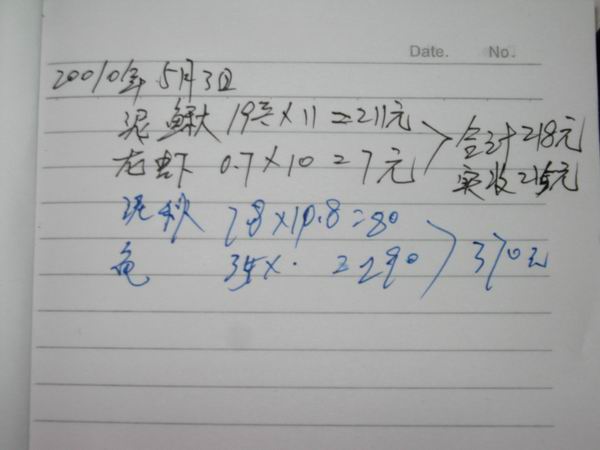 Date. No.
20010年5月3日
泥鳅 19×11=211元
龙虾 0.7×10=7元
合计218元
实收215元
泥秋 7.8×10.8=80
龟 35× · =290
370元